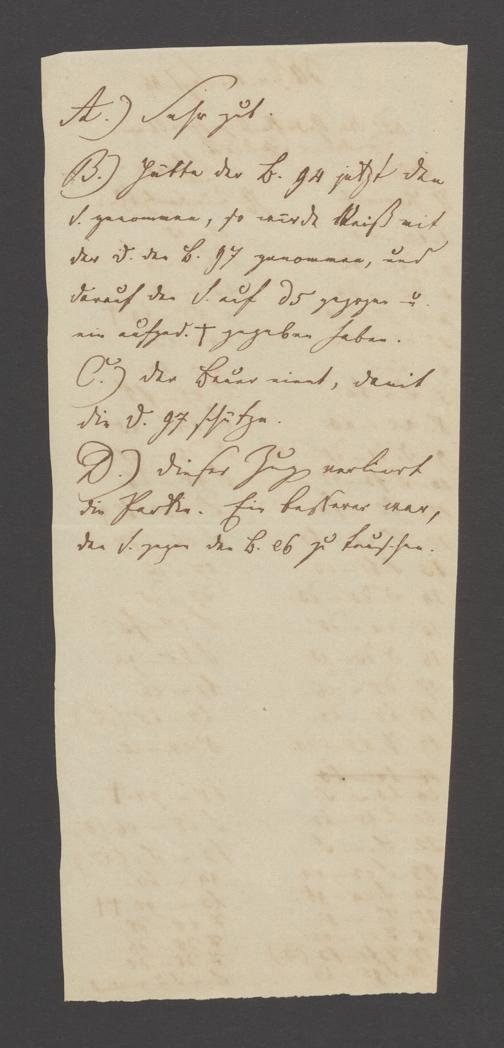 A.) Sehr gut.
B.) Hätte der B. g4 jetzt den
S. genommen, so würde Weiß mit
der D. den B. g7 genommen, und
darauf den S. auf d5 gezogen u.
ein aufged. † gegeben haben.
C.) der Bauer nimt, damit
die D. g7 schütze.
D.) dieser Zug verliert
die Partie. Ein besserer war,
den S. gegen den B. e6 zu tauschen.